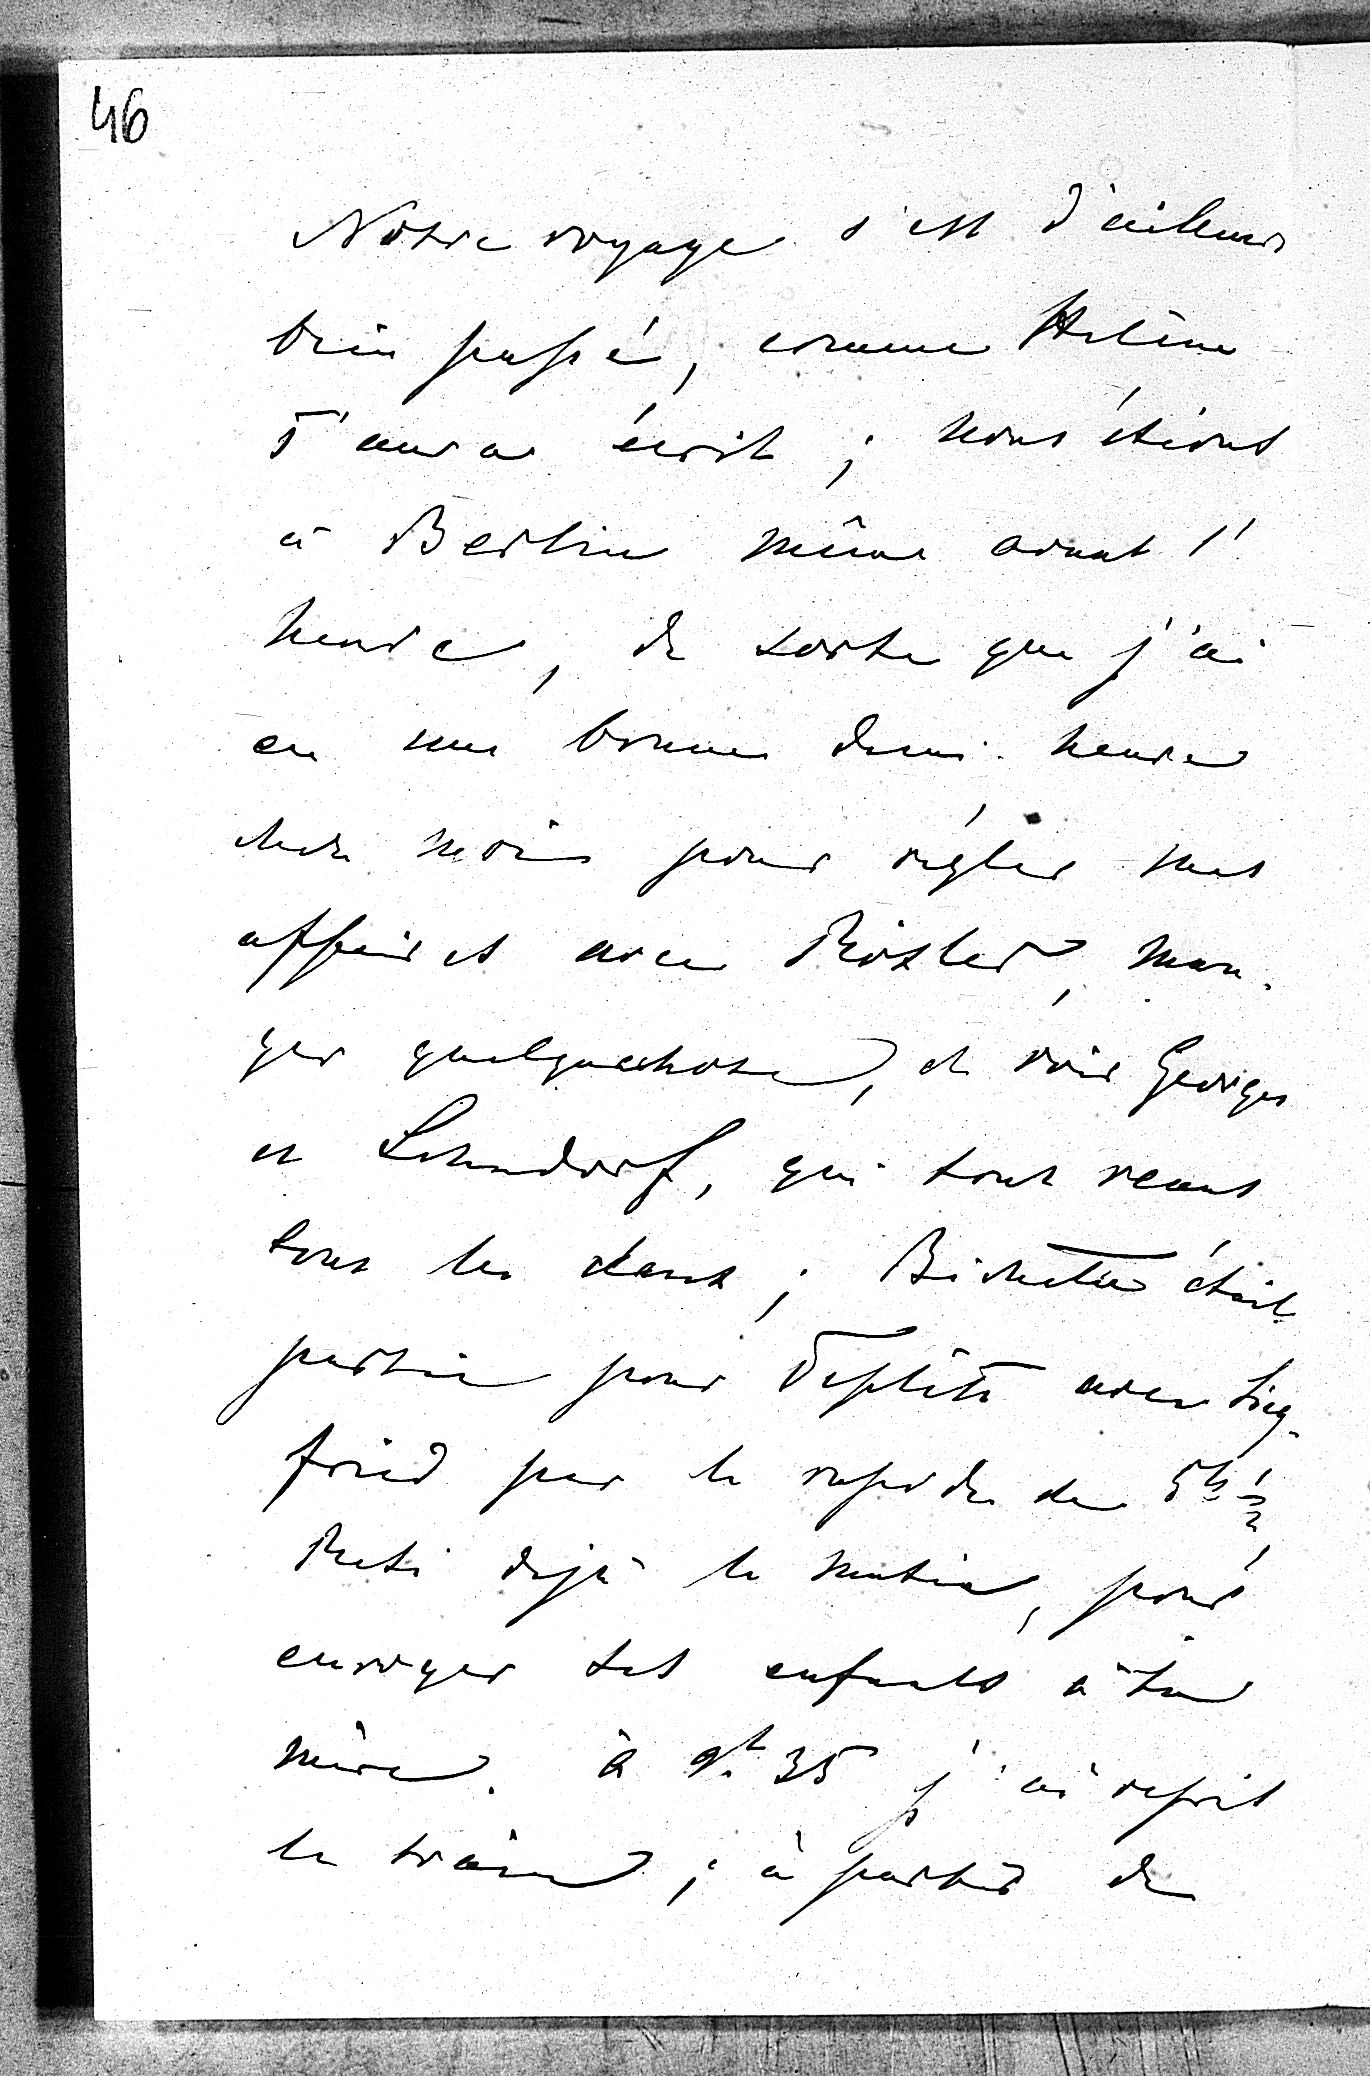 46
Notre voyage s'est d'ailleurs
bien passé, comme Hélène
t'aura écrit ; nous étions
à Berlin même avant l'
heure, de sorte que j'ai
eu une bonne demi-heure
chez moi pour régler mes
affaires avec Rösler, man-
ger quelquechose, et voir Georges
et Lehndorf, qui sont venus
tous les deux ; Bichette était
partie pour Teplitz avec Sieg-
fried par le rapide de 5h 1/2,
déjà le matin, pour
envoyer ses enfants à sa
mère. à 9h 35 j'ai repris
le train ; à partir de